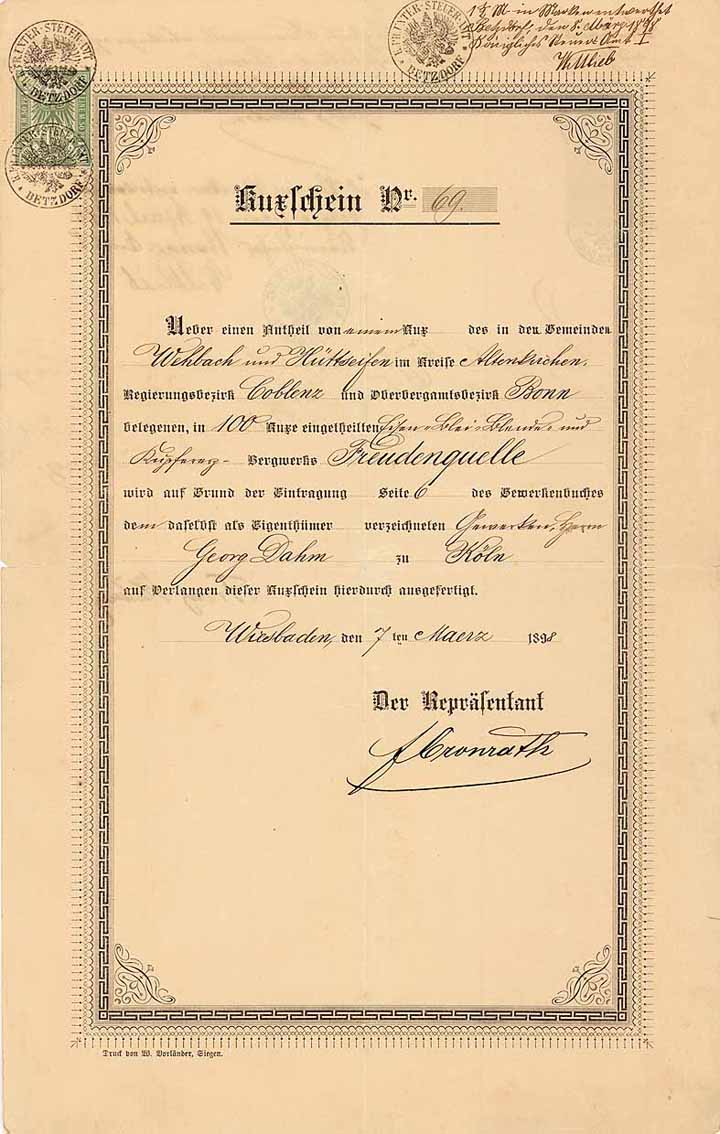 1½ M in Marken entwerthet
Betzdorf, den 8. März 1898
Königliches Steuer Amt I
Wittlieb
BETZDORF
BETZDORF
BETZDORF
Kuxschein Nr. 69.
Ueber einen Antheil von einem Kux des in den Gemeinden
Wehbach und Hüttseifen im Kreise Altenkirchen,
Regierungsbezirk Coblenz und Oberbergamtsbezirk Bonn
belegenen, in 100 Kuxe eingetheilten Eisen-Blei-Blende- und
Kupfererz- Bergwerks Freudenquelle
wird auf Grund der Eintragung Seite 6 des Gewerkenbuches
dem daselbst als Eigenthümer verzeichneten Gewerken, Herrn
Georg Dahm zu Köln
auf Verlangen dieser Kuxschein hierdurch ausgefertigt.
Wiesbaden, den 7ten Maerz 1898
Der Repräsentant
Cronrath
Druck von W. Vorländer, Siegen.